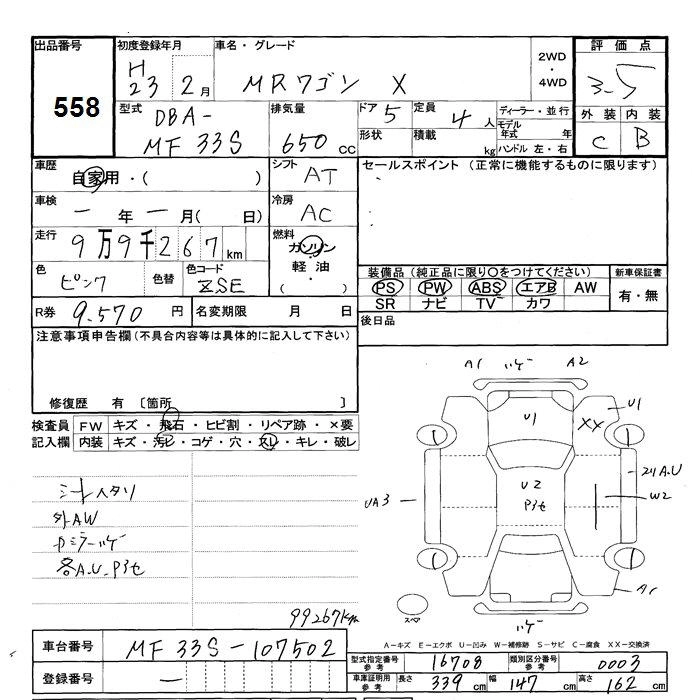 出品番号 初度登録年月 車名・グレード 2WD・4WD 評価点
558 H23 2月 MRワゴン X 3.5
型式 DBA-MF33S 排気量 650cc ドア 5 定員 4人 ディーラー・並行
形状 積載 kg モデル年式 年 ハンドル 左・右
外装 内装
C B
車歴 自家用・( ) シフト AT セールスポイント (正常に機能するものに限ります)
車検 一年一月( 日) 冷房 AC
走行 9万9千267km 燃料 ガソリン・軽油・( )
色 ピンク 色替 色コード ZSE
装備品 (純正品に限り○をつけてください) 新車保証書
PS PW ABS エアB AW 有・無
SR ナビ TV カワ
R券 9.570円 名変期限 月 日 後日品
注意事項申告欄(不具合内容等は具体的に記入して下さい)
修復歴 有 〔箇所 〕
検査員記入欄 FW キズ・飛石・ヒビ割・リペア跡・×要
内装 キズ・汚レ・コゲ・穴・スレ・キレ・破レ
シートヘタリ
外AW
各A.U.P3セ
99267km
A1 ハゲ A2
U1
U1
XX
U2
P3セ
UA3
W2
A1
スペア
ハゲ
A-キズ E-エクボ U-凹み W-補修跡 S-サビ C-腐食 XX-交換済
車台番号 MF33S-107502
登録番号 一
型式指定番号 参考 16708 類別区分番号 参考 0003
車庫証明用 参考 長さ 339cm 幅 147cm 高さ 162cm